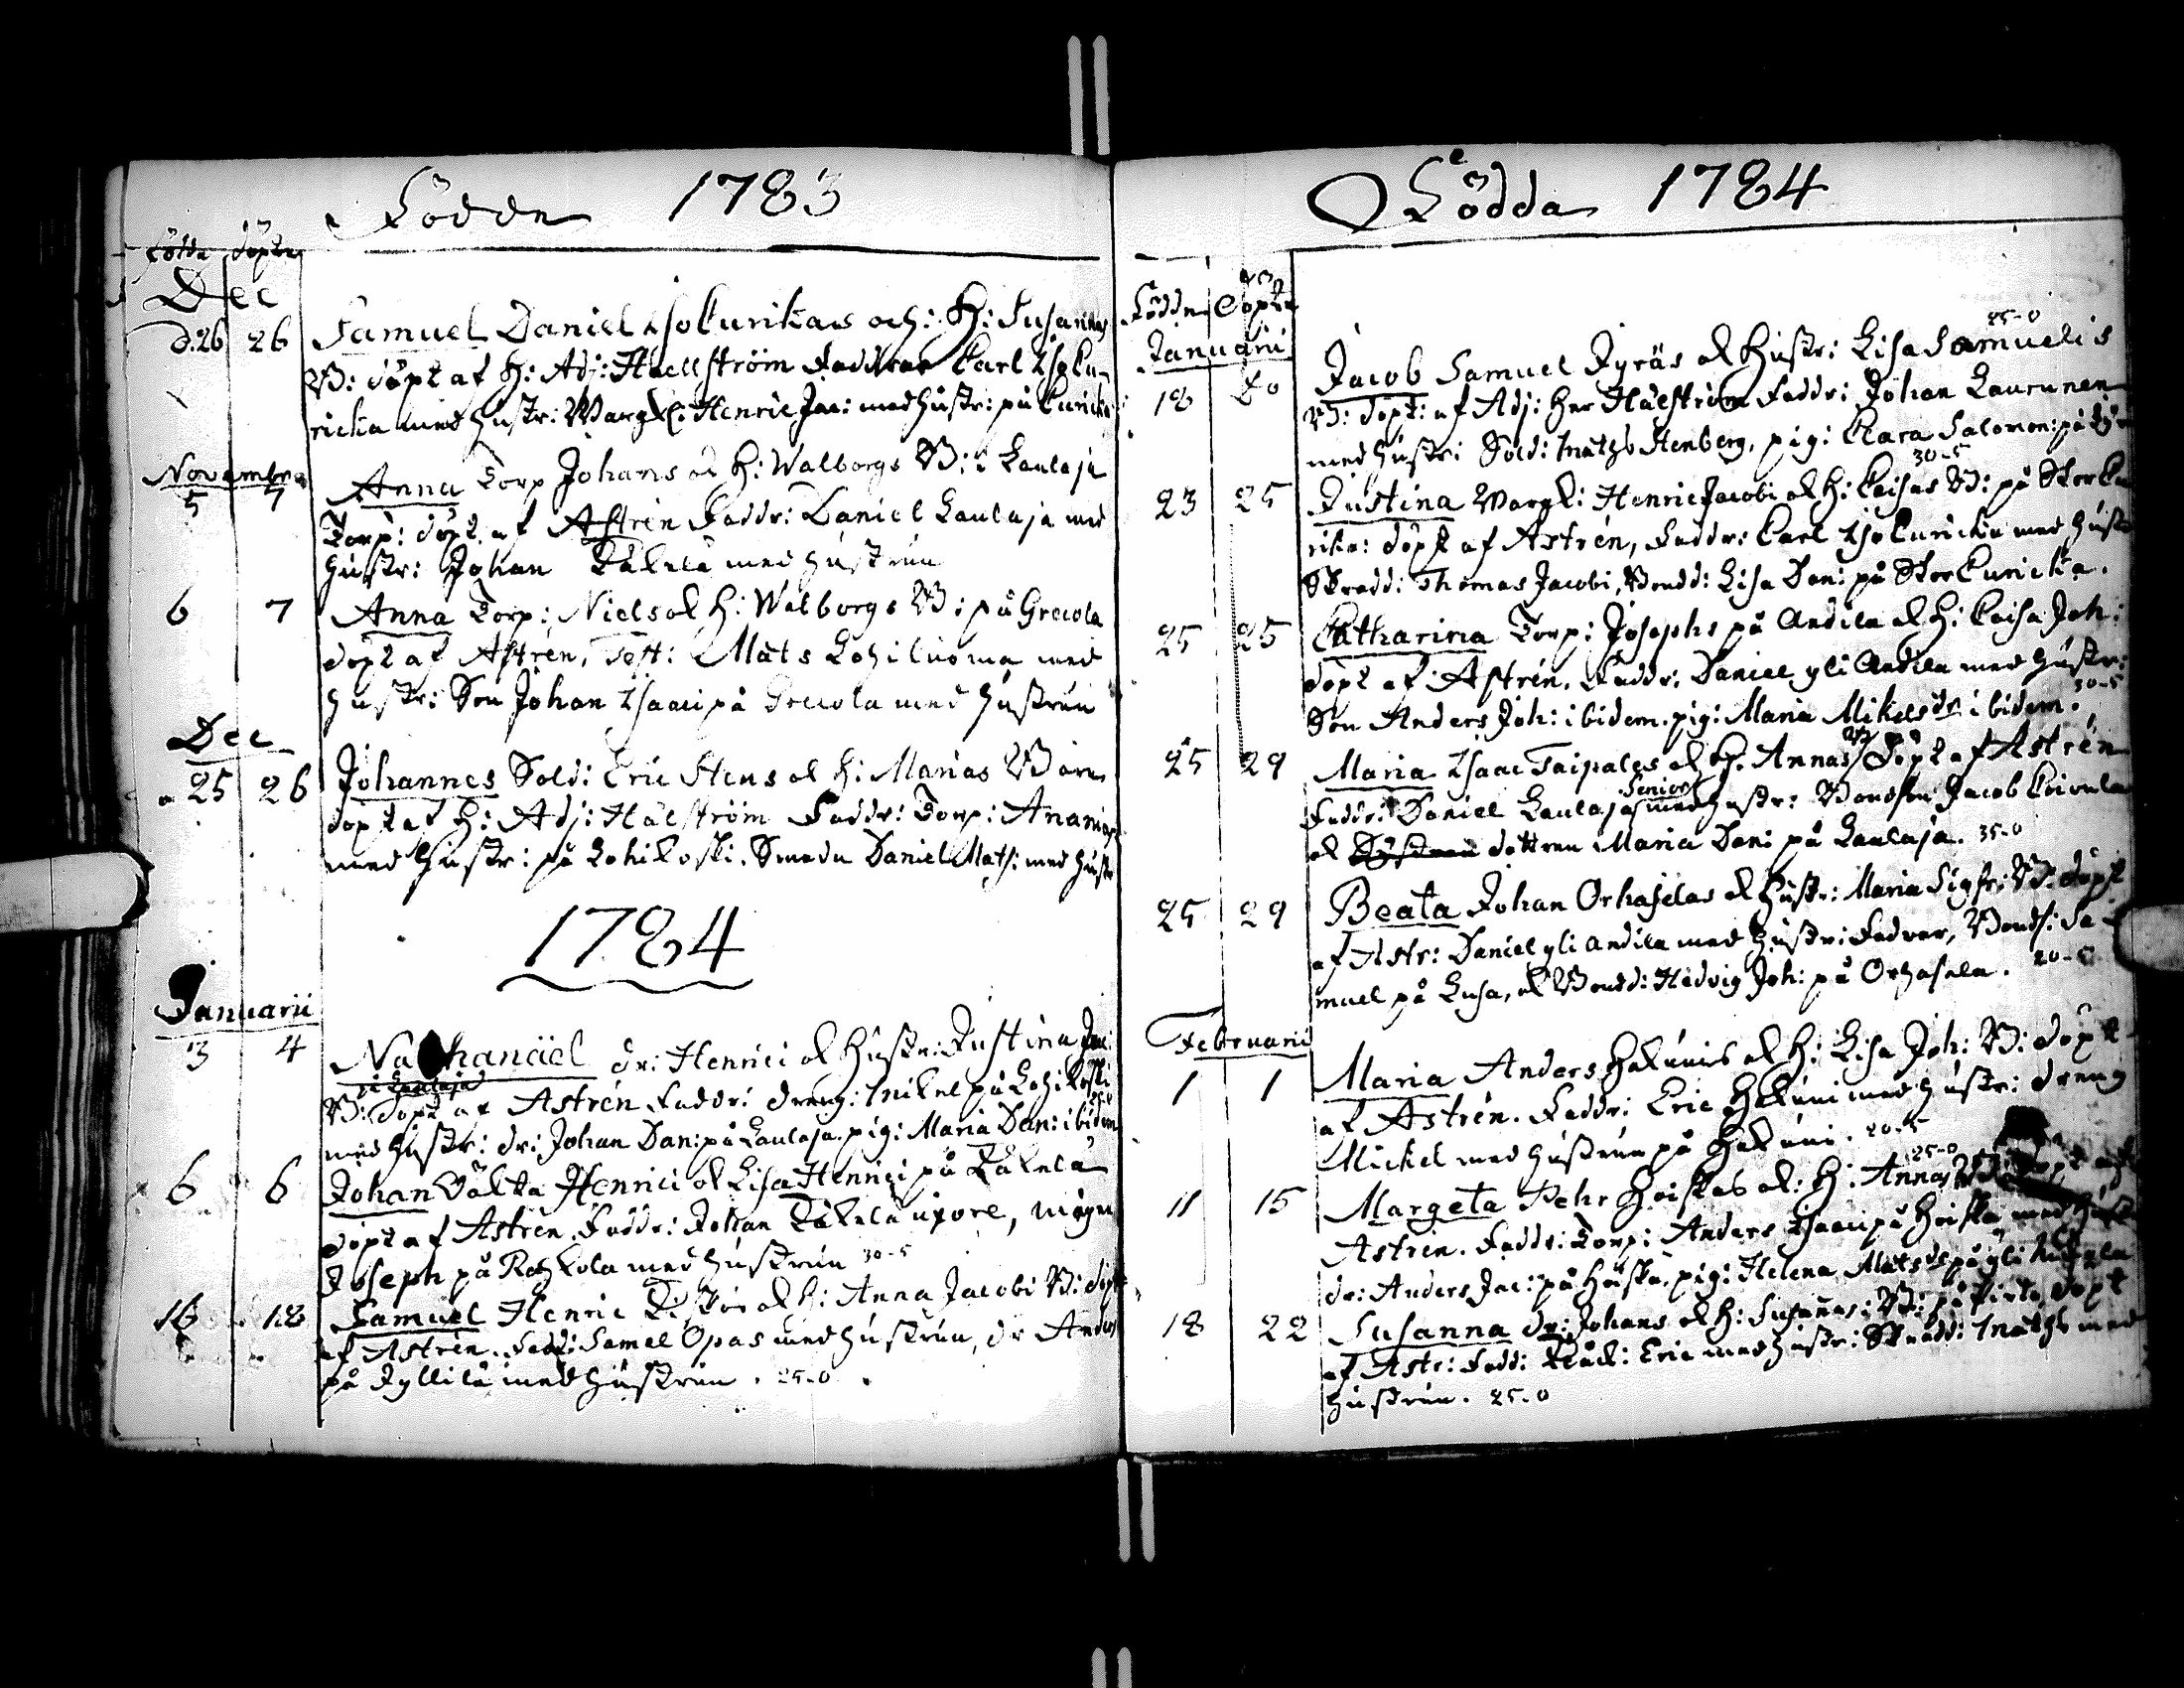 Födde 1783
födde döpte
Dec
d. 26 26 Samuel Daniel Isokurikas och: H: Susannas
B: döpt af H: Adj: Haellström Faddrar Carl Isoku-
ricka med hustr: Wargk: Henric Jac: med hustr: på kuricka
Novembr
5 7 Anna Torp Johans ok H: Walborgs B: i Laulaja
Torp: döpt af Astrén Faddr: Daniel Laulaja med
hustr: Johan Käkelä med hustrun
6 7 Anna Torp: Niels ok H: Walborgs B: på Greeola
döpt af Astrén, Test: Mats Lohiluoma med
hustr: Son Johan Isaaci på Greeola med hustrun
Dec
25 26 Johannes Sold: Eric Stens ok H: Marias Barn
döpt af H: Adj: Hälström Faddr: Torp: Ananias
med hustr: på Lohikoski. Smeden Daniel Mats: med hustr
1784
Januarii
3 4 Nathanaël dr: Henrici ok hustr: Justina Jac:
i Laulaja
B: döpt af Astrén Faddr: dreng: Mikel på Lohikoski
med hustr: dr: Johan Dan: på Laulaja. pig: Maria Dan: ibidem
6 6 Johan Henrici ok Lisa Henrici på Käkelä
döpt af Astrén. Faddr: Johan Käkelä, mågen
Joseph på Rahkola med hustrun 30-5
16 18 Samuel Henric ok h: Anna Jacobi B: döpt
af Astrén. Fadd: Samel Opas med hustrun, dr Anders
på Jyllilä med hustrun. 25-0
Födda 1784
Födde Döpte
Januarii
25-0
18 20 Jacob Samuel Jyräs ok Hustr: Lisa Samuelis
B: döpt: af Adj: Her Hälström Faddr: Johan Laurunen
med hustr: Sold: Maths Stenberg, pig: Clara Salomon: på
30-5
23 25 Justina Wargk: Henric Jacobi ok H: Caisas B: på Storku
rika: döpt af Astrén, Faddr: Carl Isokuricka med hustr
Skradd: Thomas Jacobi, Bondd: Lisa Dan: på Storkuricka.
25 25 Catharina Torp: Josephs på Andila ok H: Caisa Joh:
döpt af Astrén. Faddr: Daniel yli Andila med hustr:
Son Anders Joh: ibidem. pig: Maria Mikelsdr ibidem. 30-5
25 29 Maria Isaac Taipales ok H. Annas B/ döpt af Astrén
Senior
Faddr: Daniel Laulaja med hustr: Bondson Jacob Koivula
ok dottren Maria Dan: på Laulaja. 35-0
25 29 Beata Johan Orhaselas ok Hustr: Maria Sigfr: B: döpt
af Astr: Daniel yli Andila med hustr: Fadrar, Bonds: Sa-
muel på Lusa, ok Bondd: Hedvig Joh: på Orhasela. 20-0
Februarii
1 1 Maria Anders Hakunis ok H: Lisa Joh: B: döpt
af Astrén. Faddr: Eric Hakuni med hustr: dreng
Mickel med hustrun på Hakuni. 20-5
25-0
11 15 Margeta Pehr Hoiskas ok: H: Annas B: döpt af
Astrén. Faddr: Torp: Anders Isaaci på Hoiska med hustr
dr: Anders Jac: på Hoiska. pig: Helena Matsdr på yli
18 22 Susanna dr: Johans ok H: Susannas: B: på döpt
af Astr: Fadd: Klåck: Eric med hustr: Skradd: Mathts med
hustrun. 25-0